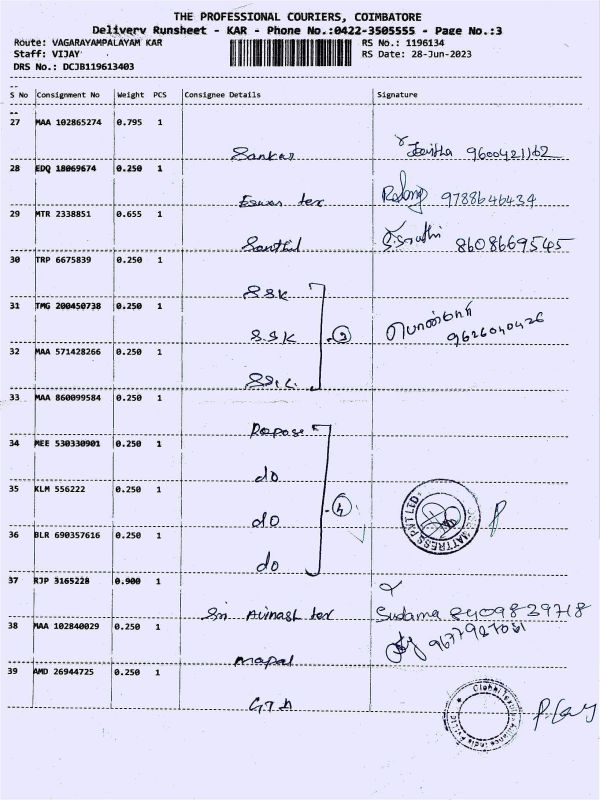 THE PROFESSIONAL COURIERS, COIMBATORE
Delivery Runsheet - KAR - Phone No.:0422-3505555 - Page No.:3
Route: VAGARAYAMPALAYAM KAR RS No.: 1196134
Staff: VIJAY RS Date: 28-Jun-2023
DRS No.: DCJB119613403
S No Consignment No Weight PCS Consignee Details Signature
27 MAA 102865274 0.795 1
Sankar 9600421162
28 EDQ 18069674 0.250 1
Eswar tex 9788646434
29 MTR 2338851 0.655 1
Senthil 8608669545
30 TRP 6675839 0.250 1
SSK
31 TMG 200450738 0.250 1
SSK 3 பொன்மணி 9626040426
32 MAA 571428266 0.250 1
SSK
33 MAA 860099584 0.250 1
Repose
34 MEE 530330901 0.250 1
do
35 KLM 556222 0.250 1
do 4 MATTRESS PVT LTD
36 BLR 690357616 0.250 1
do
37 RJP 3165228 0.900 1
Sri Avinash tex Sudama 8409839718
38 MAA 102840029 0.250 1
mapal 9677927081
39 AMD 26944725 0.250 1
GTA Global Textile Alliance India Pvt Ltd